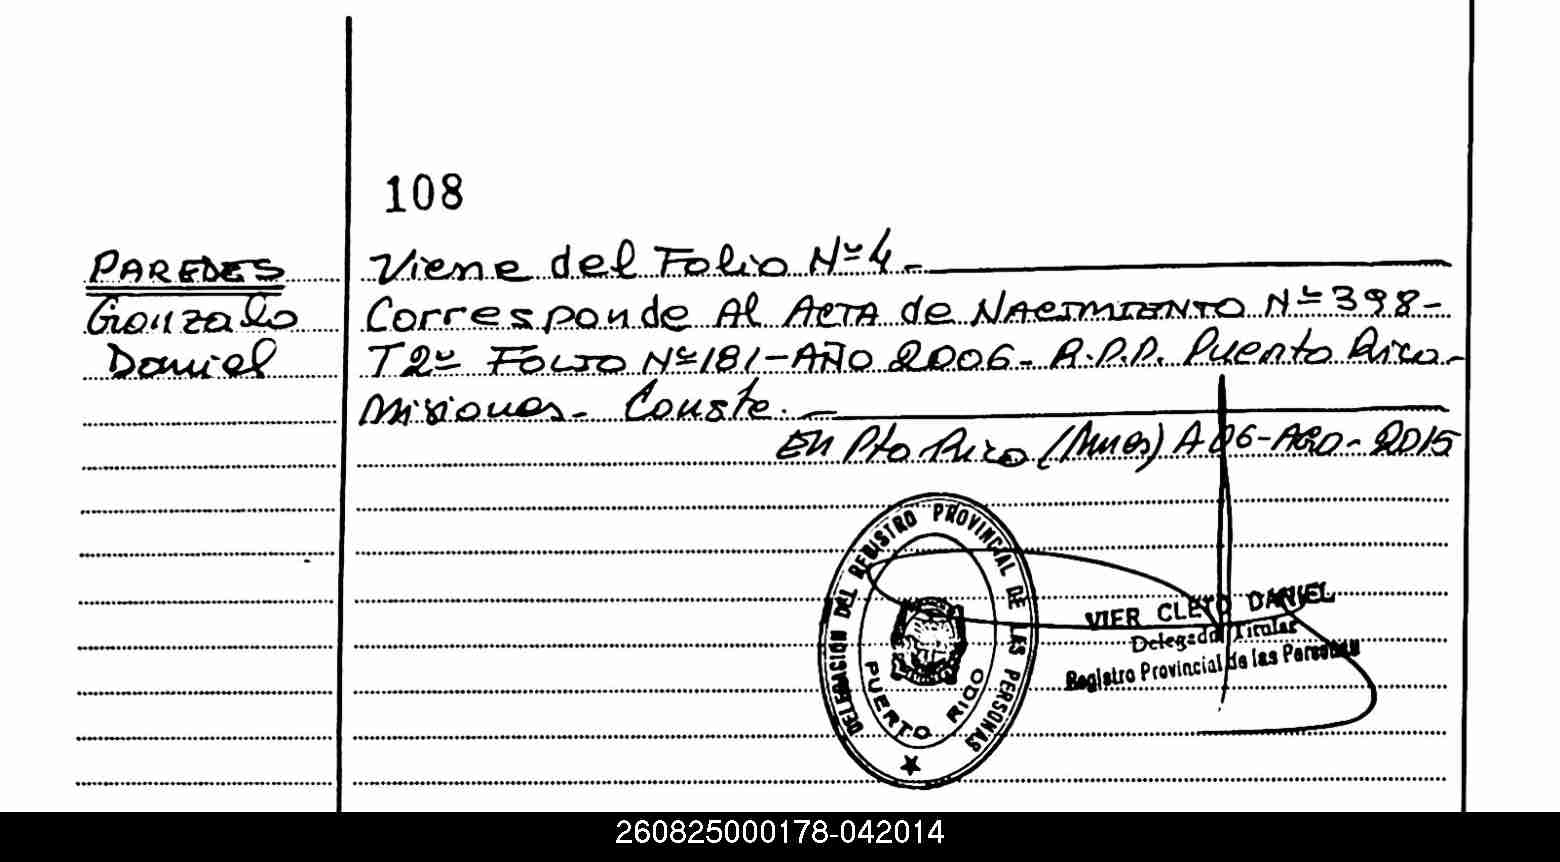 108
PAREDES
Gonzalo
Daniel
Viene del Folio Nº 4 -
Corresponde Al ACTA de NACIMIENTO Nº 398-
T 2º FOLIO Nº 181-AÑO 2006- R.P.P. Puerto Rico-
Misiones- Conste. -
En Pto Rico (Mnes) A 06-AGO-2015
DELEGACIÓN DEL REGISTRO PROVINCIAL DE LAS PERSONAS
PUERTO RICO
VIER CLETO DANIEL
Delegado Titular
Registro Provincial de las Personas
260825000178-042014